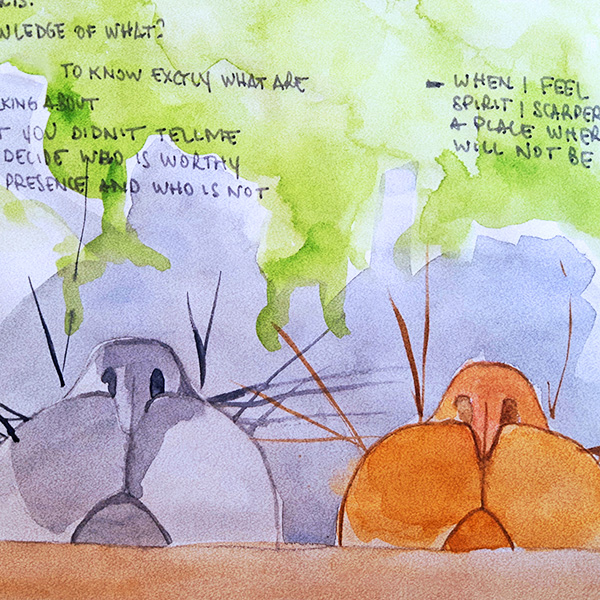 KNOWLEDGE OF WHAT?
TO KNOW EXCTLY WHAT ARE
KING ABOUT
YOU DIDN'T TELL ME
DECIDE WHO IS WORTHY
PRESENCE AND WHO IS NOT
- WHEN I FEEL
SPIRIT I SCARPER
A PLACE WHER
WILL NOT BE